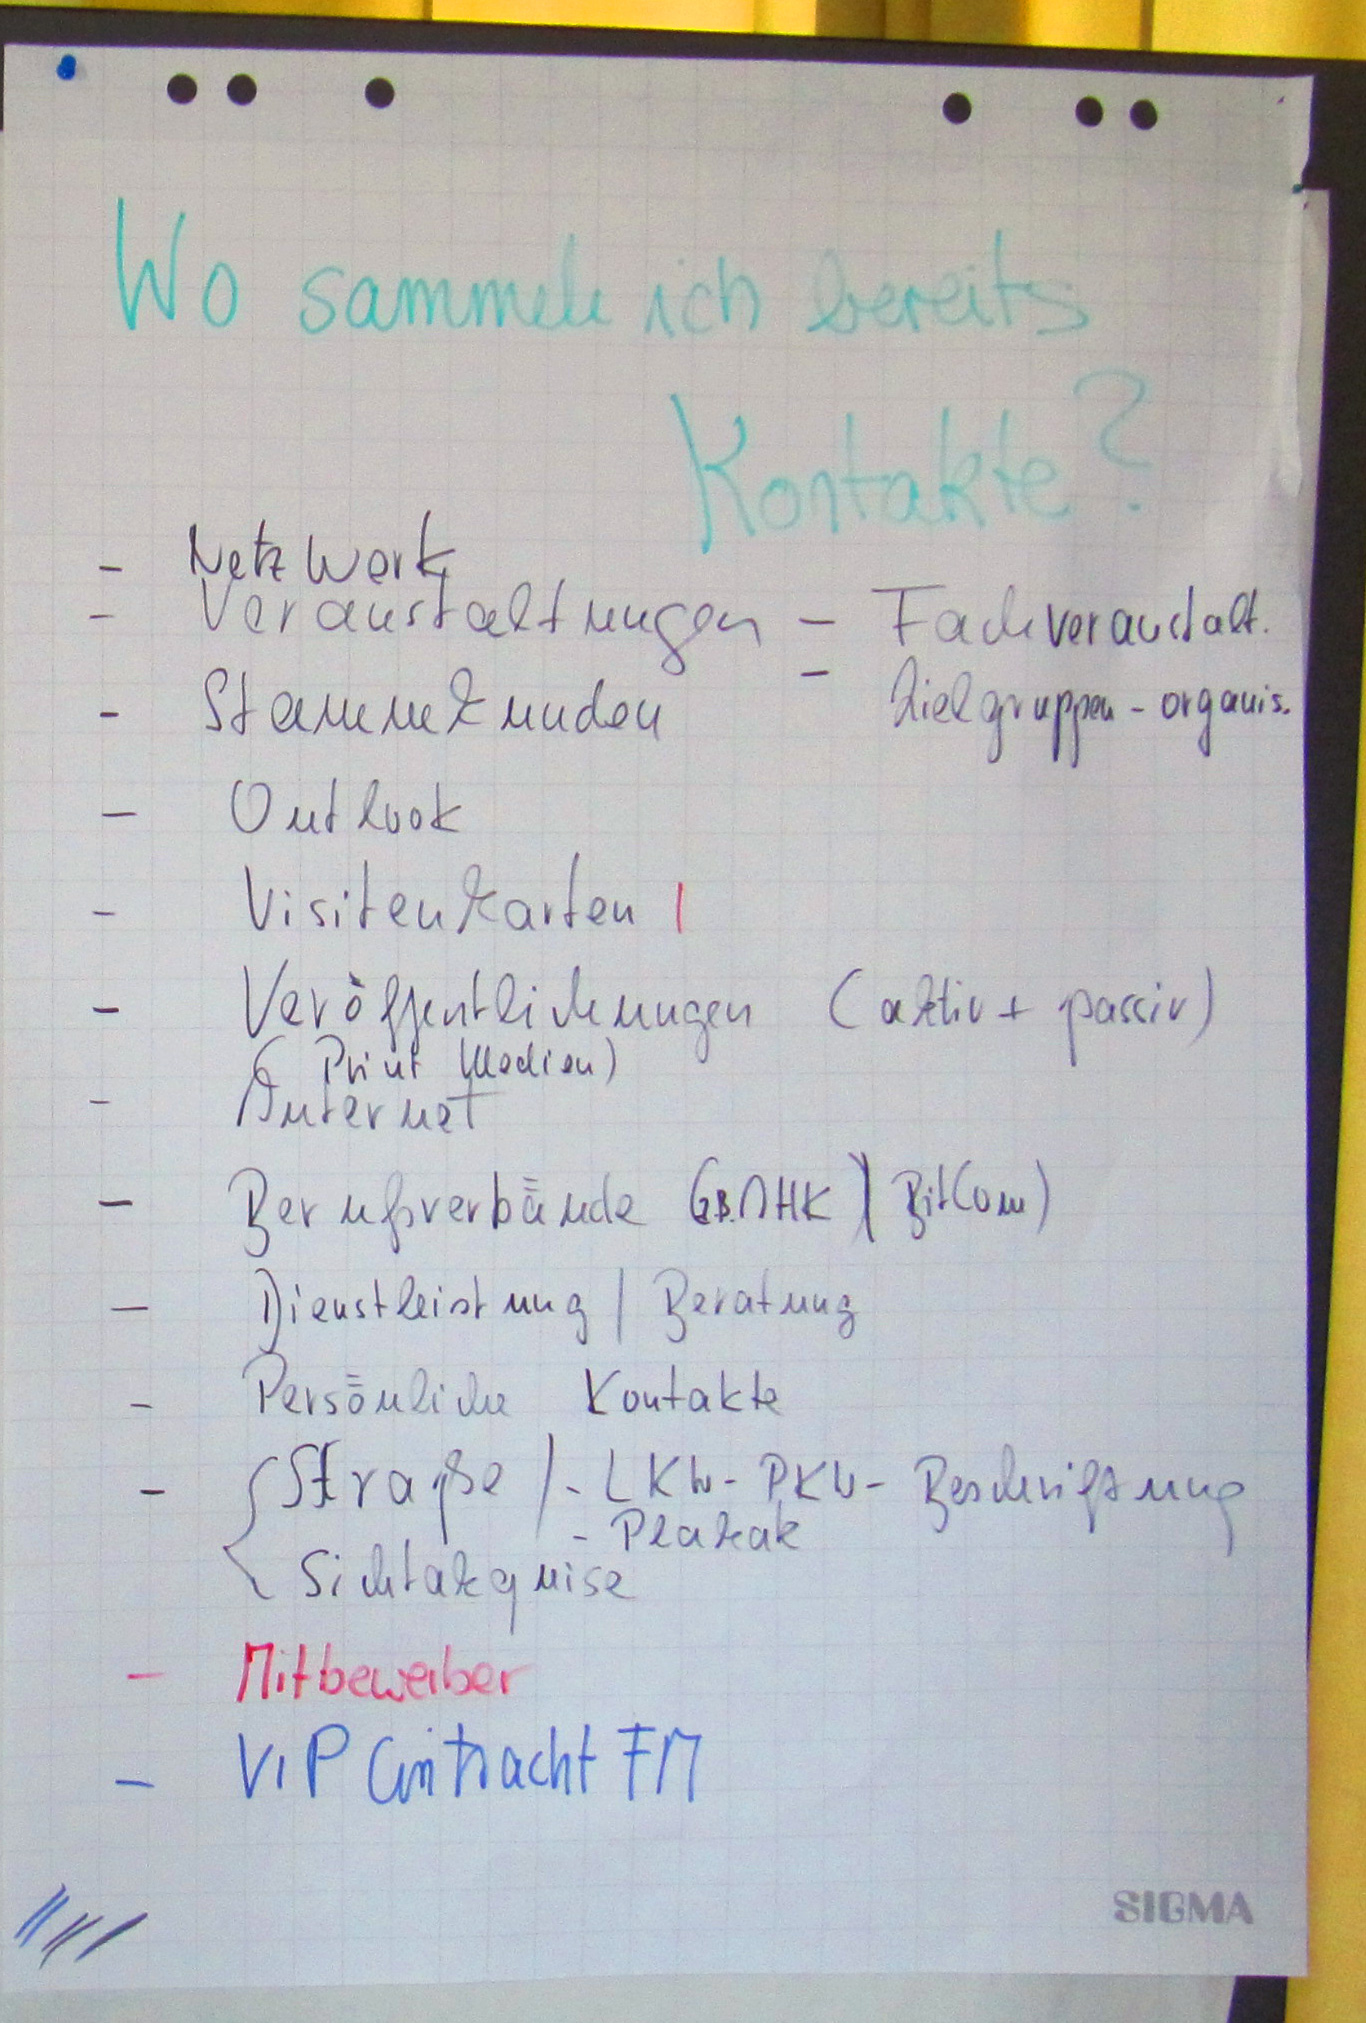 Wo sammele ich bereits
Kontakte?
- Netzwerk
- Veranstaltungen - Fachveranstalt.
- Zielgruppen - organis.
- Stammkunden
- Outlook
- Visitenkarten
- Veröffentlichungen (aktiv + passiv)
(Print Medien)
- Internet
- Berufsverbände (z.B. AHK) BitCom)
- Dienstleistung / Beratung
- Persönliche Kontakte
- Straße / - LKW - PKW - Beschriftung
- Plakak
Sichtakquise
- Mitbewerber
- VIP Eintracht FM
SIGMA